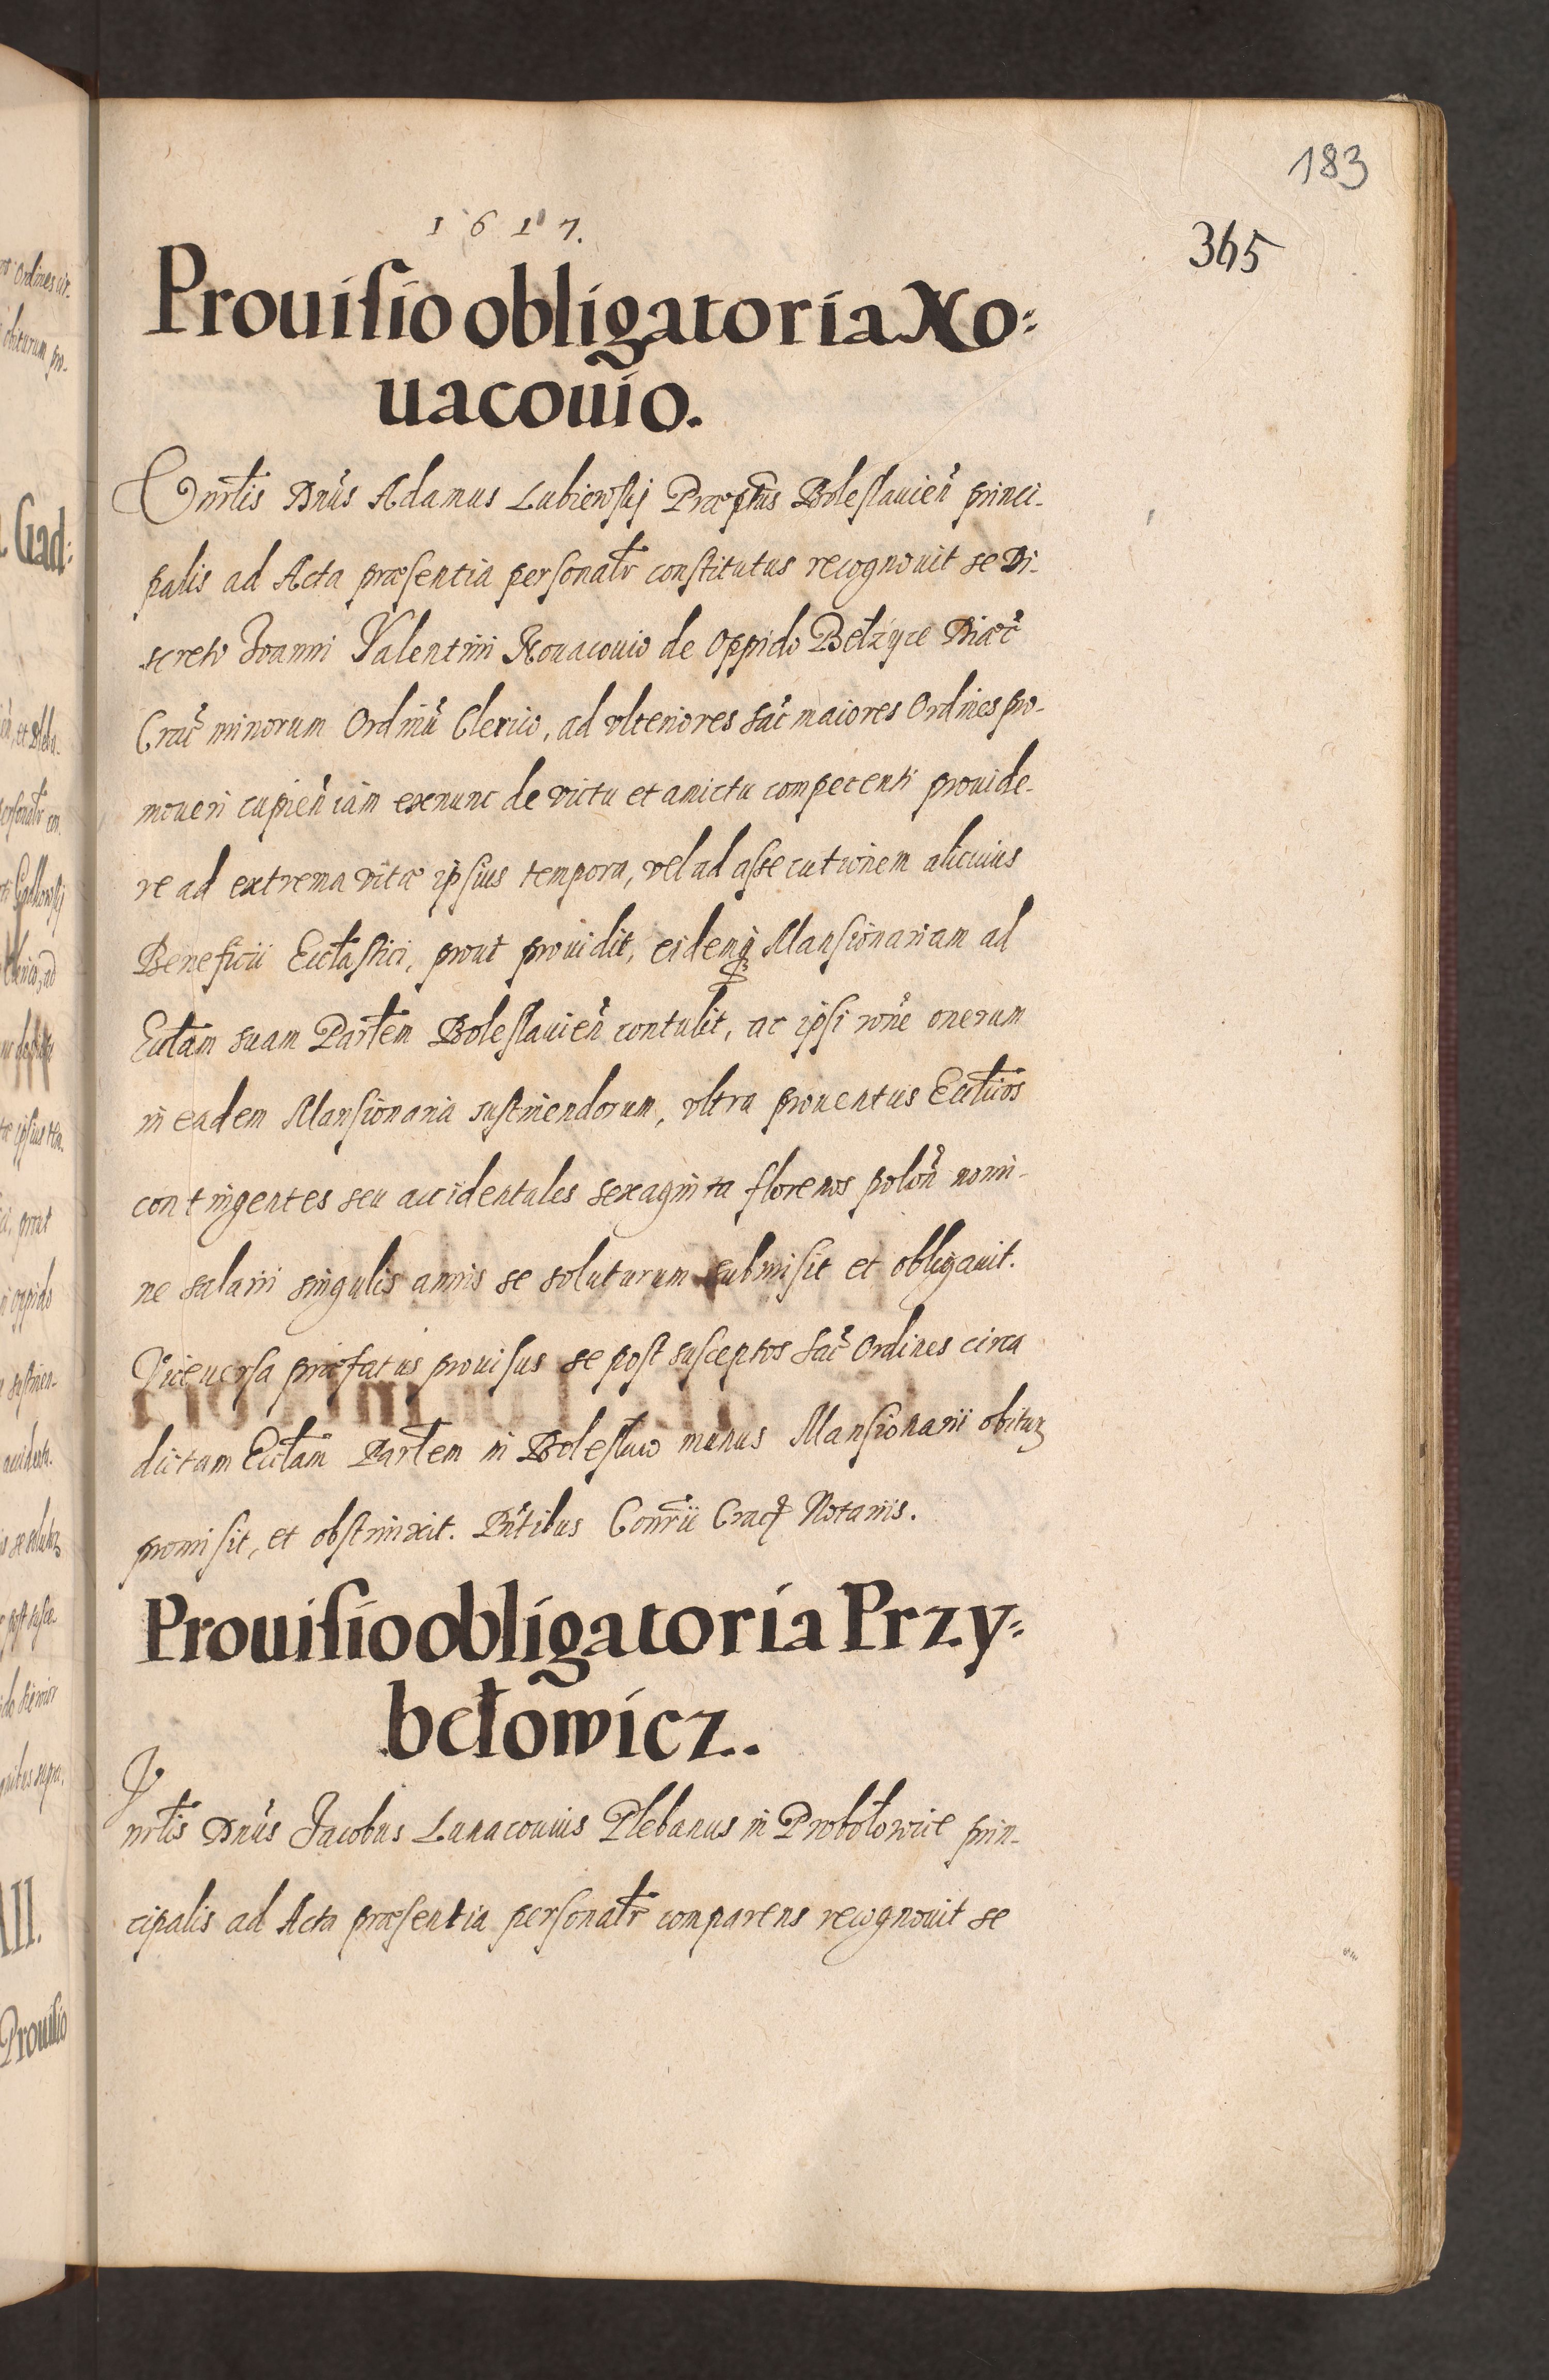 183
365
1617.
Prouisio obligatoria No:
uacouio.
Vnrlis Dnus Adamus Lubienskj Præptus Boleslauien princi-
palis ad Acta præsentia personalr constitutus recognouit se Di-
screto Joanni Valentini Nouacouio de Oppido Bełzyce Diæc
Crac minorum Ordinu Clerico, ad vlteriores sac maiores Ordines pro-
moueri cupien iam exnunc de victu et amictu competenti prouide-
re ad extrema vitæ ipsius tempora, vel ad assecutionem alicuius
Beneficii Ecclastici, prout prouidit, eidemq Mansionariam ad
Ecclam suam Parlem Boleslauien contulit, ac ipsi rone onerum
in eadem Mansionaria sustinendorum, vltra prouentus Ecclicos
contingentes seu accidentales sexaginta florenos polon nomi-
ne salarii singulis annis se soluturum submisit et obligauit.
Viceuersa præfatus prouisus se post susceptos sac Ordines circa
dictam Ecclam Parlem in Bolesław munus Mansionarii obituꝝ
promisit, et obstrinxit. Pntibus Conrii Crac Notariis.
Prouisio obligatoria Przy:
bełowicz.
Vnrlis Dnus Jacobus Lunacouius Plebanus in Probołowice prin-
cipalis ad Acta præsentia personalr comparens recognouit se